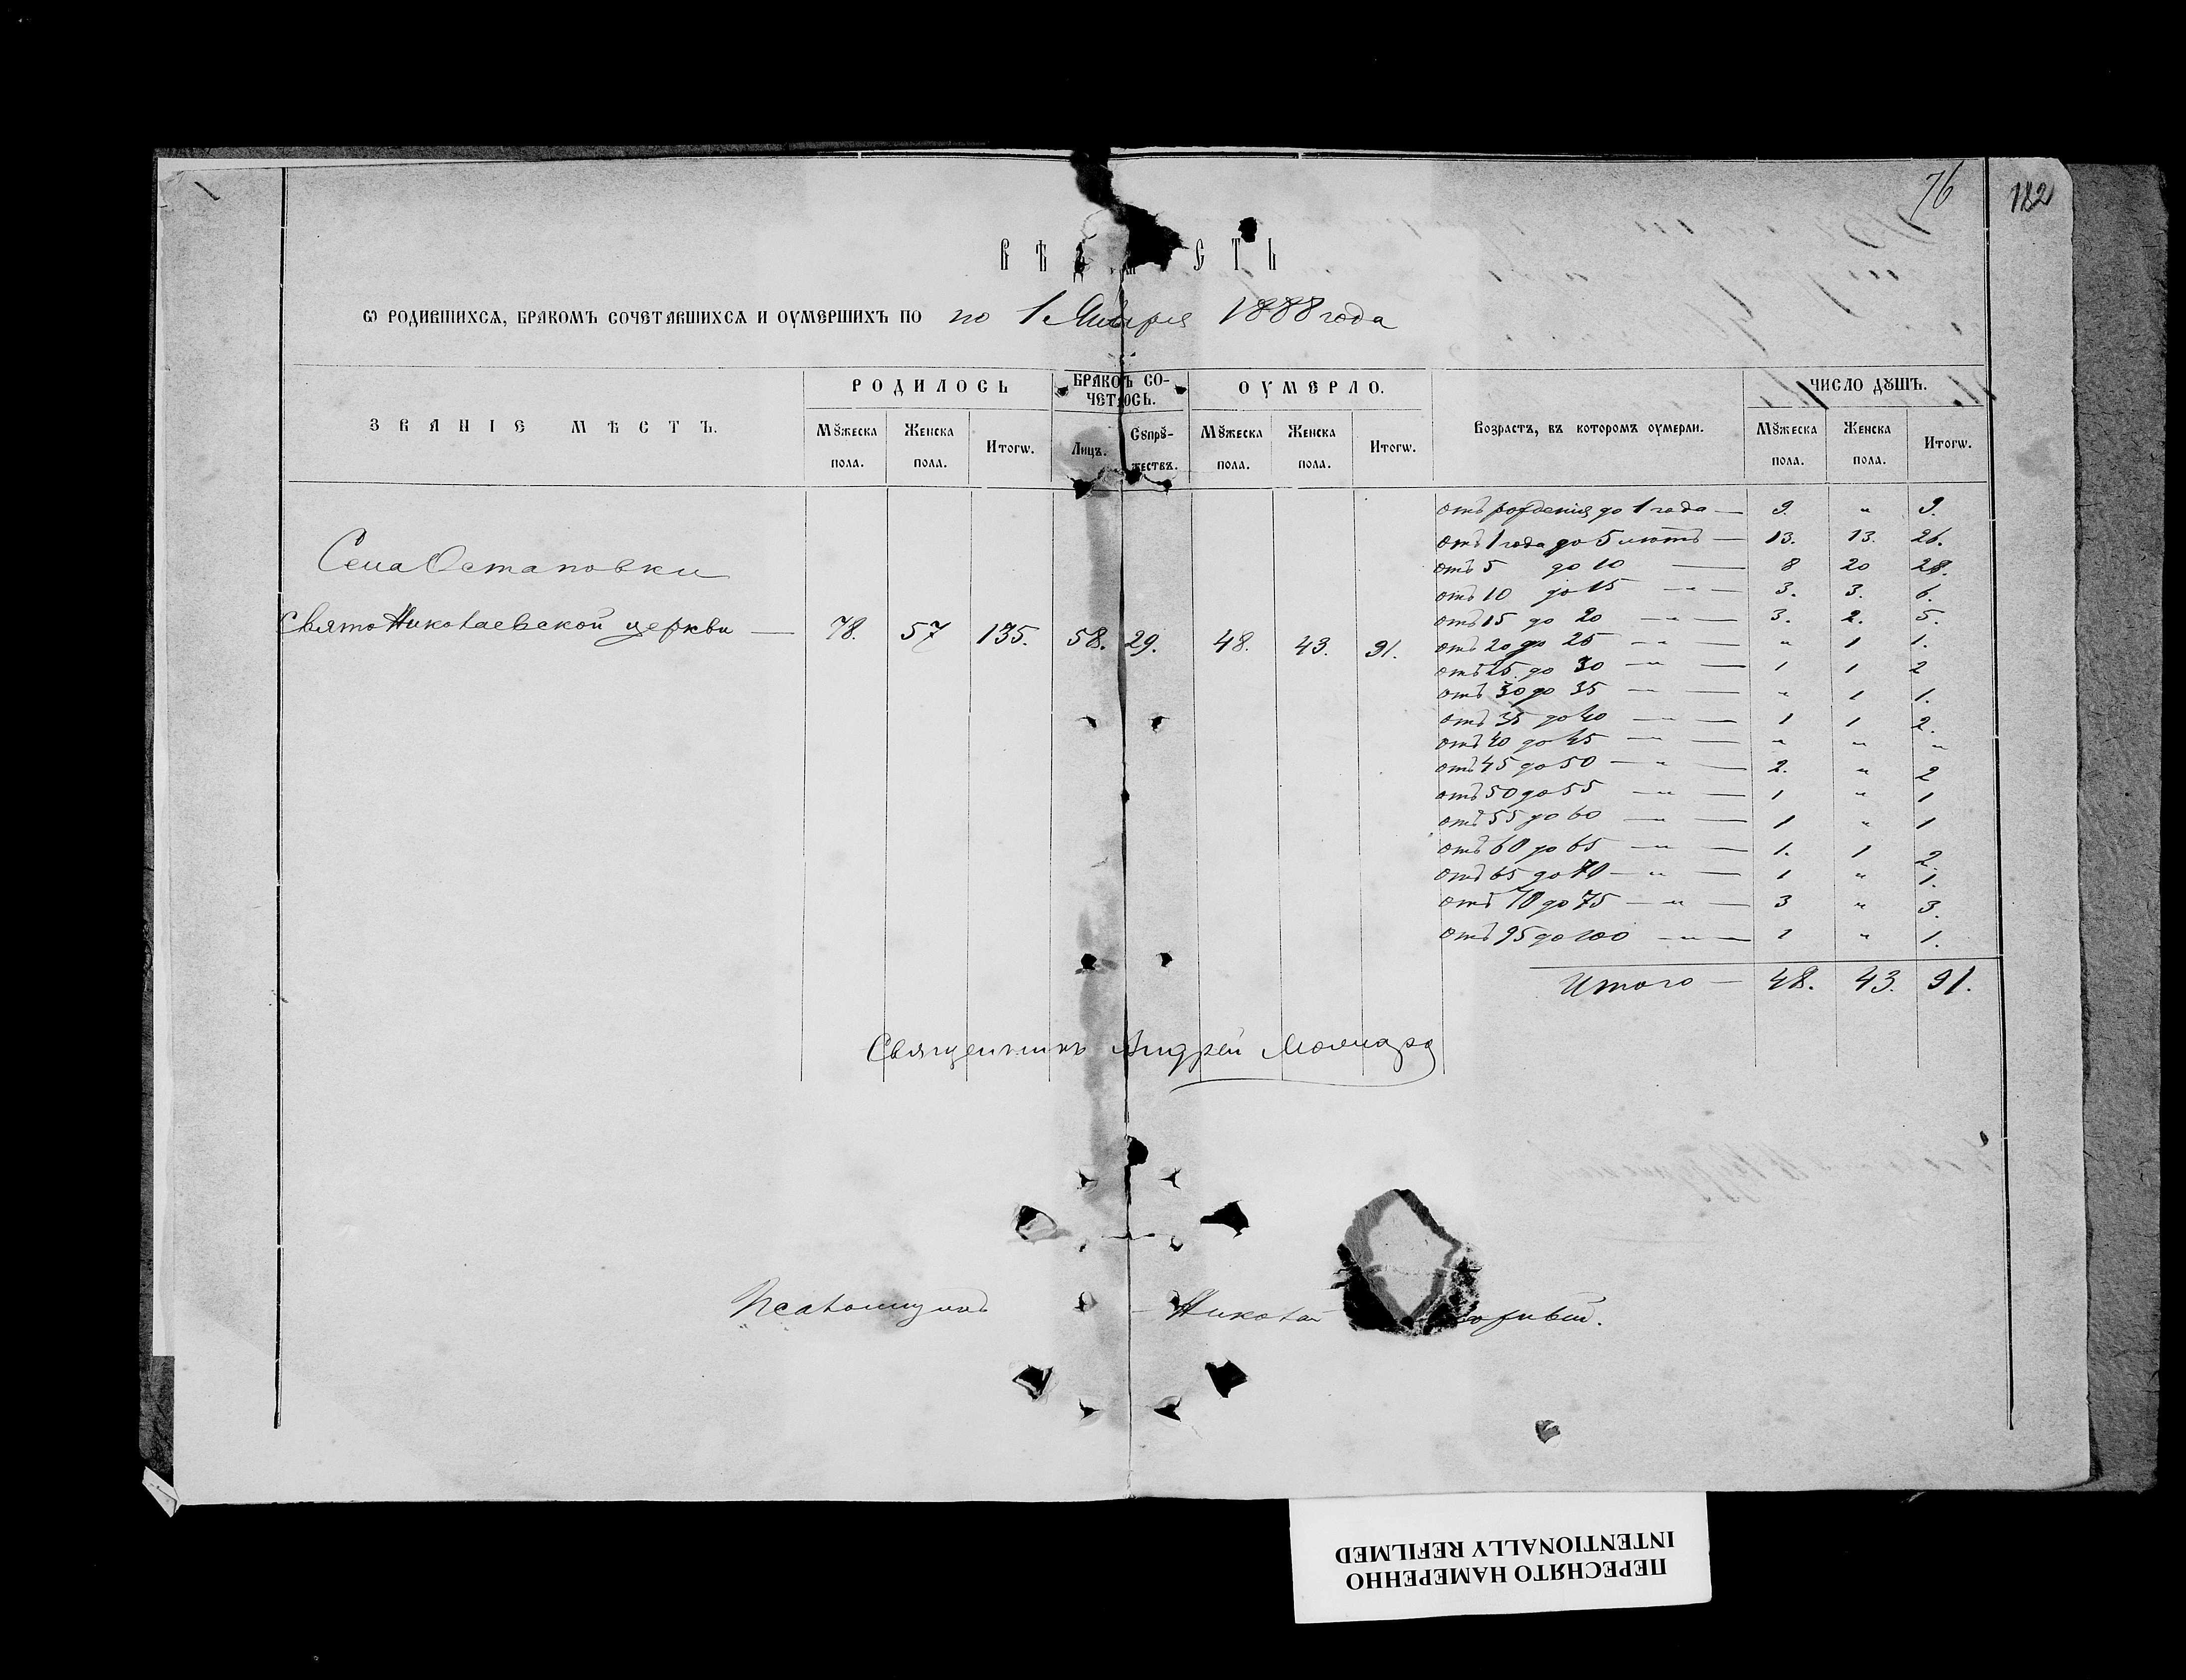 76 182
ВѢД СТЬ
Ѡ РОДИВШИХСѦ, БРАКОМЪ СОЧЕТАВШИХСѦ И ОУМЕРШИХЪ ПО по 1 Января 1888 года
ЗВАНІЕ МѢСТЪ. РОДИЛОСЬ БРАКОМЪ СО- ОУМЕРЛО. Возрастъ, въ которомъ оумерли. ЧИСЛО ДꙊШЪ.
ЧЕТ ОСЬ.
МꙊжеска Женска Итогѡ. Лицъ. СꙊпрꙊ- МꙊжеска Женска Итогѡ. МꙊжеска Женска Итогѡ.
пола. пола. жествъ. пола. пола. пола. пола.
отъ рожденія до 1 года — 9. " 9.
отъ 1 года до 5 лѣтъ — 13. 13. 26.
Села Остаповки
отъ 5 до 10 — 8 20 28.
отъ 10 до 15 — " — 3. 3. 6.
отъ 15 до 20 — " — 3. 2. 5.
Свято Николаевской церкви — 78. 57 135. 58. 29. 48. 43. 91.
отъ 20 до 25 — " — " 1 1.
отъ 25 до 30 — " — 1 1 2
отъ 30 до 35 — " — " 1 1.
отъ 35 до 40 — " — 1 1 2.
отъ 40 до 45 — " — " " "
отъ 45 до 50 — " — 2. " 2
отъ 50 до 55 — " — 1 " 1
отъ 55 до 60 — " — 1 " 1
отъ 60 до 65 — " — 1. 1 2.
отъ 65 до 70 — " — 1 " 1.
отъ 70 до 75 — " — 3 " 3.
отъ 95 до 100 — " — 1 " 1.
Итого — 48. 43. 91.
Священникъ Андрей
Псаломщикъ Николай
ПЕРЕСНЯТО НАМЕРЕННО
INTENTIONALLY REFILMED